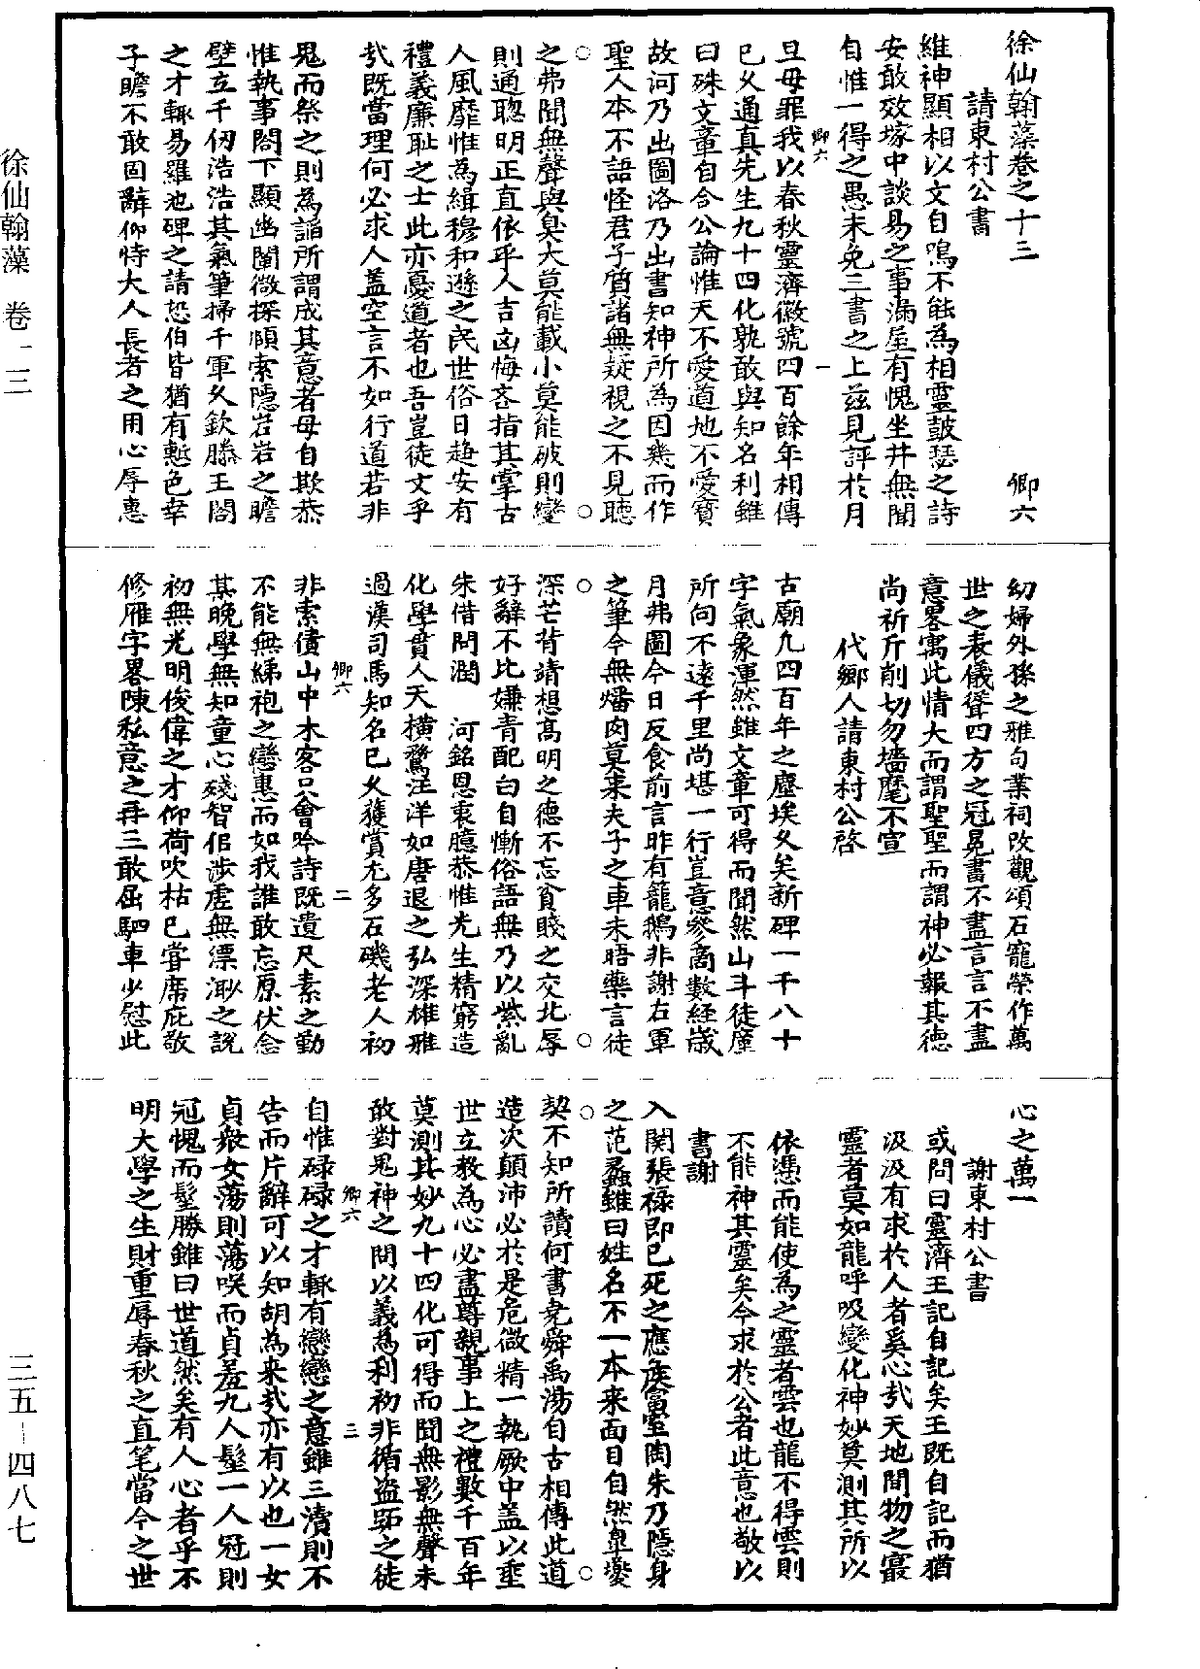 徐仙翰藻卷之十三　卿六
請東村公書
維神顯相以文自鳴不能為相靈鼓瑟之詩
安敢效塚中談易之事滿屋有愧坐井無聞
自惟一得之愚未免三書之上兹見評於月
卿六　一
旦毋罪我以春秋靈濟徽號四百餘年相傳
已久通真先生九十四化孰敢與知名利雖
曰殊文章自合公論惟天不愛道地不愛寶
故河乃出圖洛乃出書知神所為因幾而作
聖人本不語怪君子質諸無疑視之不見聽
之弗聞無聲與臭大莫能載小莫能破則變
則通聰明正直依乎人吉凶悔吝指其掌古
人風靡惟為緝穆和遜之民世俗日趨安有
禮義廉耻之士此亦憂道者也吾豈徒文乎
㢤既當理何必求人盖空言不如行道若非
鬼而祭之則為謟所謂成其意者毋自欺恭
惟執事閤下顯幽闡微探賾索隱若岩之瞻
壁立千仞浩浩其氣筆掃千軍久欽滕王閣
之才輙易羅池碑之請恐伯皆猶有慙色幸
子瞻不敢固辭仰恃大人長者之用心辱惠
幼婦外孫之雅句業祠改觀頌石寵榮作萬
世之表儀聳四方之冠冕書不盡言言不盡
意畧寓此情大而謂聖聖而謂神必報其德
尚祈斤削切勿墻麾不宣
代鄉人請東村公啓
古廟九四百年之塵埃久矣新碑一千八十
字氣象渾然雖文章可得而聞然山斗徒廑
所向不遠千里尚堪一行豈意參商數経歳
月弗圖今日反食前言昨有籠鵝非謝右軍
之筆今無燔肉莫来夫子之車未晤藥言徒
深芒背靖想髙明之德不忘貧賤之交北辱
好辭不比嫌青配白自慚俗語無乃以紫亂
朱借問潤　河銘恩衷臆恭惟先生精窮造
化學貫人天横騖汪洋如唐退之弘深雄雅
過漢司馬知名已久獲賞尤多石磯老人初
卿六　二
非索債山中木客只會吟詩既遺尺素之勤
不能無綈袍之戀惠而如我誰敢忘原伏念
某晚學無知童心殘智但涉虛無漂渺之說
初無光明俊偉之才仰荷吹枯已甞席庇敬
修雁字畧陳私意之再三敢屈駟車少慰此
心之萬一
謝東村公書
或問曰靈濟王記自記矣王既自記而猶
汲汲有求於人者奚心㢤天地間物之最
靈者莫如龍呼吸變化神妙莫測其所以
依憑而能使為之靈者雲也龍不得雲則
不能神其靈矣今求於公者此意也敬以
書謝
入関張禄即已死之應侯富室陶朱乃隱身
之范蠡雖曰姓名不一本来面目自然臯夔
契不知所讀何書堯舜禹湯自古相傳此道
造次顛沛必於是危微精一執厥中盖以垂
世立教為心必盡尊親事上之禮數千百年
莫測其妙九十四化可得而聞無影無聲未
敢對鬼神之問以義為利初非循盗跖之徒
卿六　三
自惟碌碌之才輙有戀戀之意雖三瀆則不
告而片辭可以知胡為来㢤亦有以也一女
貞衆女蕩則蕩咲而貞羞九人髽一人冠則
冠愧而髽勝雖曰世道然矣有人心者乎不
明大學之生財重辱春秋之直笔當今之世
徐仙翰藻　卷一三
三五—四八七